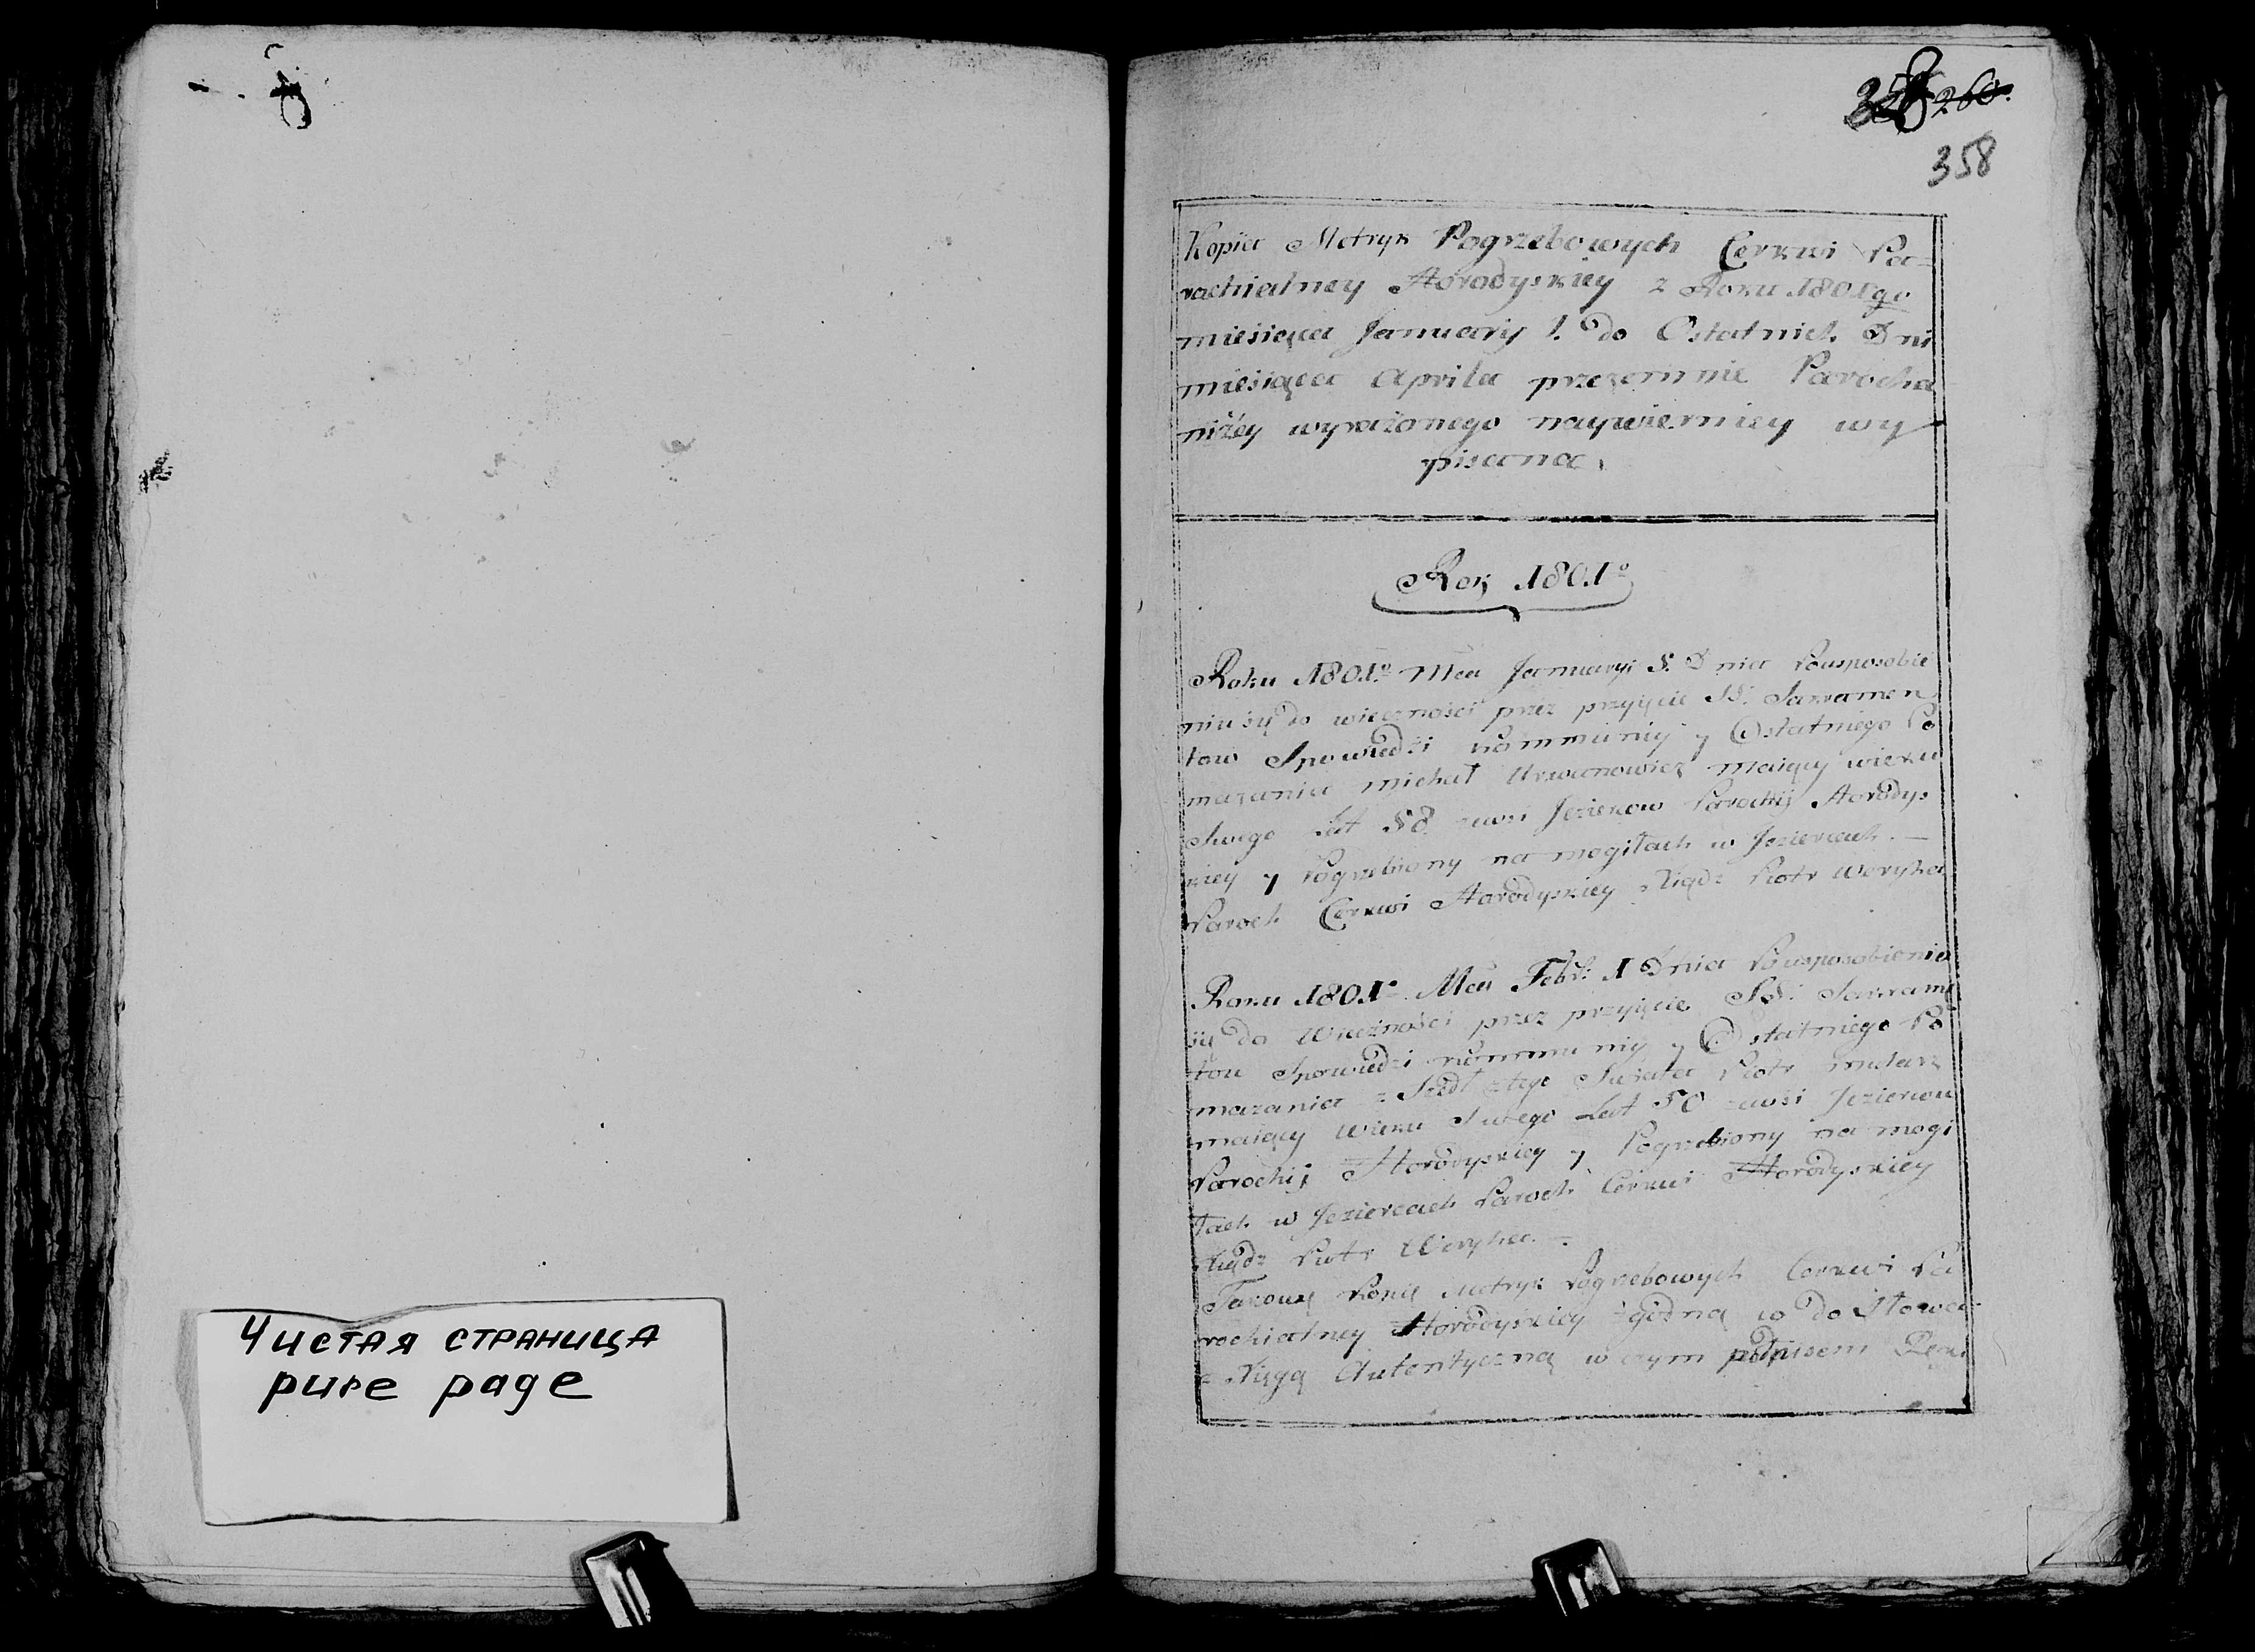 Чистая страница
pure page
260.
358
Kopia Metryk Pogrzebowych Cerkwi Pa-
rachialney Horodyskiey z Roku 1801go
miesiąca January 1.o do Ostatnich Dni
miesiąca Aprila przezemnie Parocha
niżey wyrażonego naywierniey wy
pisana.
Rok 1801o
Roku 1801o Mca January 5. Dnia Pousposobie
niu się do wieczności przez przyięcie SS. Sakramen
tow Spowiedzi kommunij y Ostatniego Po
mazania michał Urwanowicz maiący wieku
Swego Lat 58 zewsi Jezierców Parochij Horodys
kiey y Pogrzebiony na mogiłach w Jeziercach.—
Paroch Cerkwi Horodyskiey Xiądz Piotr Weryha
Roku 1801o Mca Febr: 1 Dnia Pousposobieniu
się do Wieczności przez przyięcie SS: Sakrame
tow Spowiedzi kommunij y Ostatniego Po
mazania z Szedł ztego Swiata Piotr
maiący Wieku Swego Lat 50 zewsi Jeziercow
Parochij Horodyskiey y Pogrzebiony na mogi
łach w Jeziercach Paroch Cerkwi Horodyskiey
Xiądz Piotr Weryha.—
Takową Kopią Metryk Pogrzebowych Cerkwi Pa
rochialney Horodyskiey zgodną co do Słowa
z Xięgą Autentyczną w czym podpisem Ręki